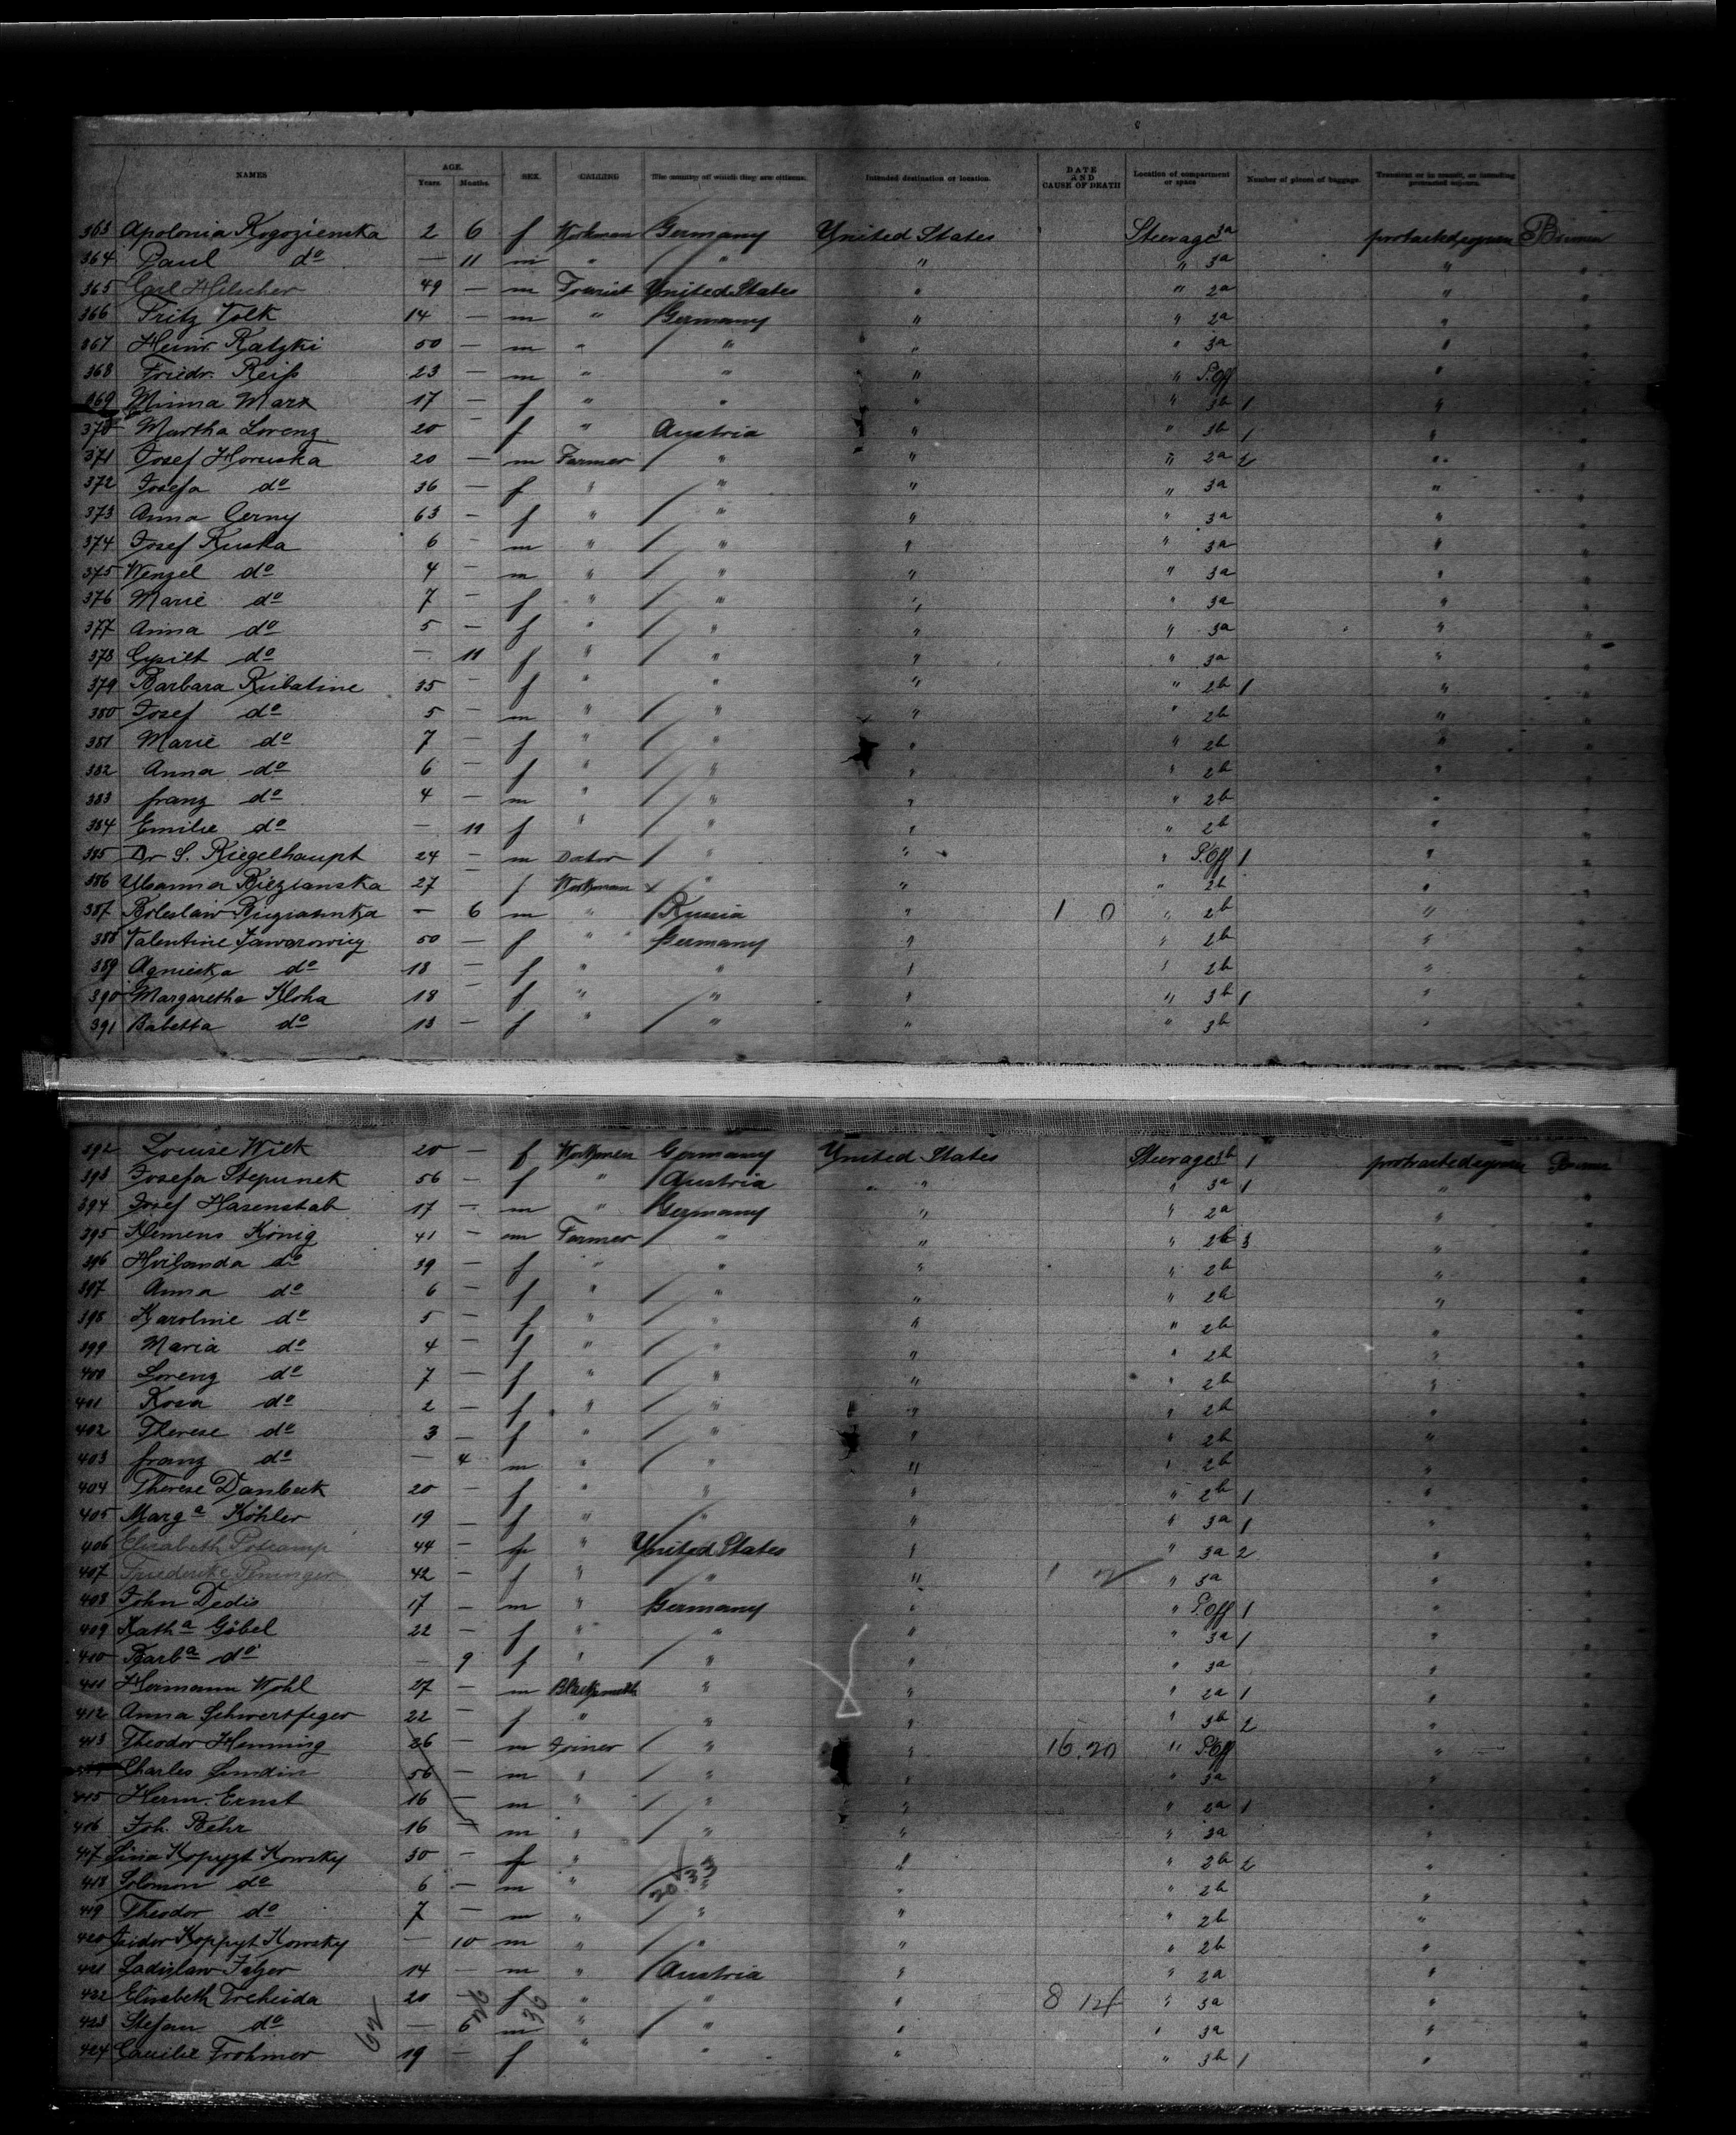 NAMES AGE. Years. Months. SEX. CALLING The country of which they are citizens. Intended destination or location. DATE AND CAUSE OF DEATH Location of compartment or space Number of pieces of baggage. Transient or in transit, or intending protracted sojourn.
363 Apolonia Rogozienska 2 6 f Workman Germany United States Steerage 3a protracted sojourn Bremen
364 Paul do — 11 m " " " " 3a "
365 Carl Helscher 49 — m Tourist United States " " 2a "
366 Fritz Volk 14 — m " Germany " " 2a "
367 Heinr. Ratzki 50 — m " " " " 3a "
368 Friedr. Reiß 23 — m " " " " S.Off "
369 Minna Marx 17 — f " " " " 3b 1 "
370 Martha Lorenz 20 — f " Austria " " 3b 1 "
371 Josef Horuska 20 — m Farmer " " " 2a 2 "
372 Josefa do 36 — f " " " " 3a "
373 Anna Cerny 63 — f " " " " 3a "
374 Josef Ruska 6 — m " " " " 3a "
375 Wenzel do 4 — m " " " " 3a "
376 Marie do 7 — f " " " " 3a "
377 Anna do 5 — f " " " " 3a "
378 do — 11 f " " " " 3a "
379 Barbara Rubatine 35 — f " " " " 2b 1 "
380 Josef do 5 — m " " " " 2b "
381 Marie do 7 — f " " " " 2b "
382 Anna do 6 — f " " " " 2b "
383 franz do 4 — m " " " " 2b "
384 Emilie do — 11 f " " " " 2b "
385 Dr S. Riegelhaupt 24 — m Doctor " " " S.Off 1 "
386 27 f Workman " " " 2b "
387 Boleslaw — 6 m " Russia " 1 0 " 2b "
388 Valentine Jawarowicz 50 — f " Germany " " 2b "
389 Agnieska do 18 — f " " " " 2b "
390 Margaretha Kloha 18 f " " " " 3b 1 "
391 Babetta do 13 — f " " " " 3b "
392 Louise Wilk 20 — f Workmen Germany United States Steerage 3b 1 protracted sojourn Bremen
393 Josefa Stepunek 56 — f " Austria " " 3a 1 "
394 Josef Hasenstab 17 — m " Germany " " 2a "
395 Klemens König 41 — m Farmer " " " 2b 3 "
396 Hvilanda do 39 — f " " " " 2b "
397 Anna do 6 — f " " " " 2b "
398 Karoline do 5 — f " " " " 2b "
399 Maria do 4 — f " " " " 2b "
400 Lorenz do 7 — f " " " " 2b "
401 Rosa do 2 — f " " " " 2b "
402 Therese do 3 — f " " " " 2b "
403 franz do — 4 m " " " " 2b "
404 Therese Dambeck 20 — f " " " " 2b 1 "
405 Marga Köhler 19 — f " " " " 3a 1 "
406 Elisabeth Potcamp 44 — f " United States " " 3a 2 "
407 Friederike Peninger 42 — f " " " " 3a "
408 John Dedis 17 — m " Germany " " S.Off 1 "
409 Katha Göbel 22 — f " " " " 3a 1 "
410 Barba do — 9 f " " " " 3a "
411 Hermann Wohl 27 — m Blacksmith " " " 2a 1 "
412 Anna Schwertfeger 22 — f " " " " 3b 2 "
413 Theodor Henning 26 — m Joiner " " 16.20 " S.Off "
Charles Lundin 56 — m " " " " 3a "
415 Herm. Ernst 16 — m " " " " 2a 1 "
416 Joh. Behr 16 — m " " " " 3a "
417 Lina Kopyzt Kowsky 30 — f " " " " 2b 2 "
418 Solomon do 6 — m " " " " 2b "
419 Theodor do 7 — m " " " " 2b "
420 Isidor Koppyt Kowsky — 10 m " " " " 2b "
421 Ladislaw 14 — m " Austria " " 2a "
422 Elisabeth Trcheida 20 — f " " " 8 12 " 3a "
423 Stefan do — 6 m " " " " 3a "
424 Frohmer 19 — f " " " " 3b 1 "